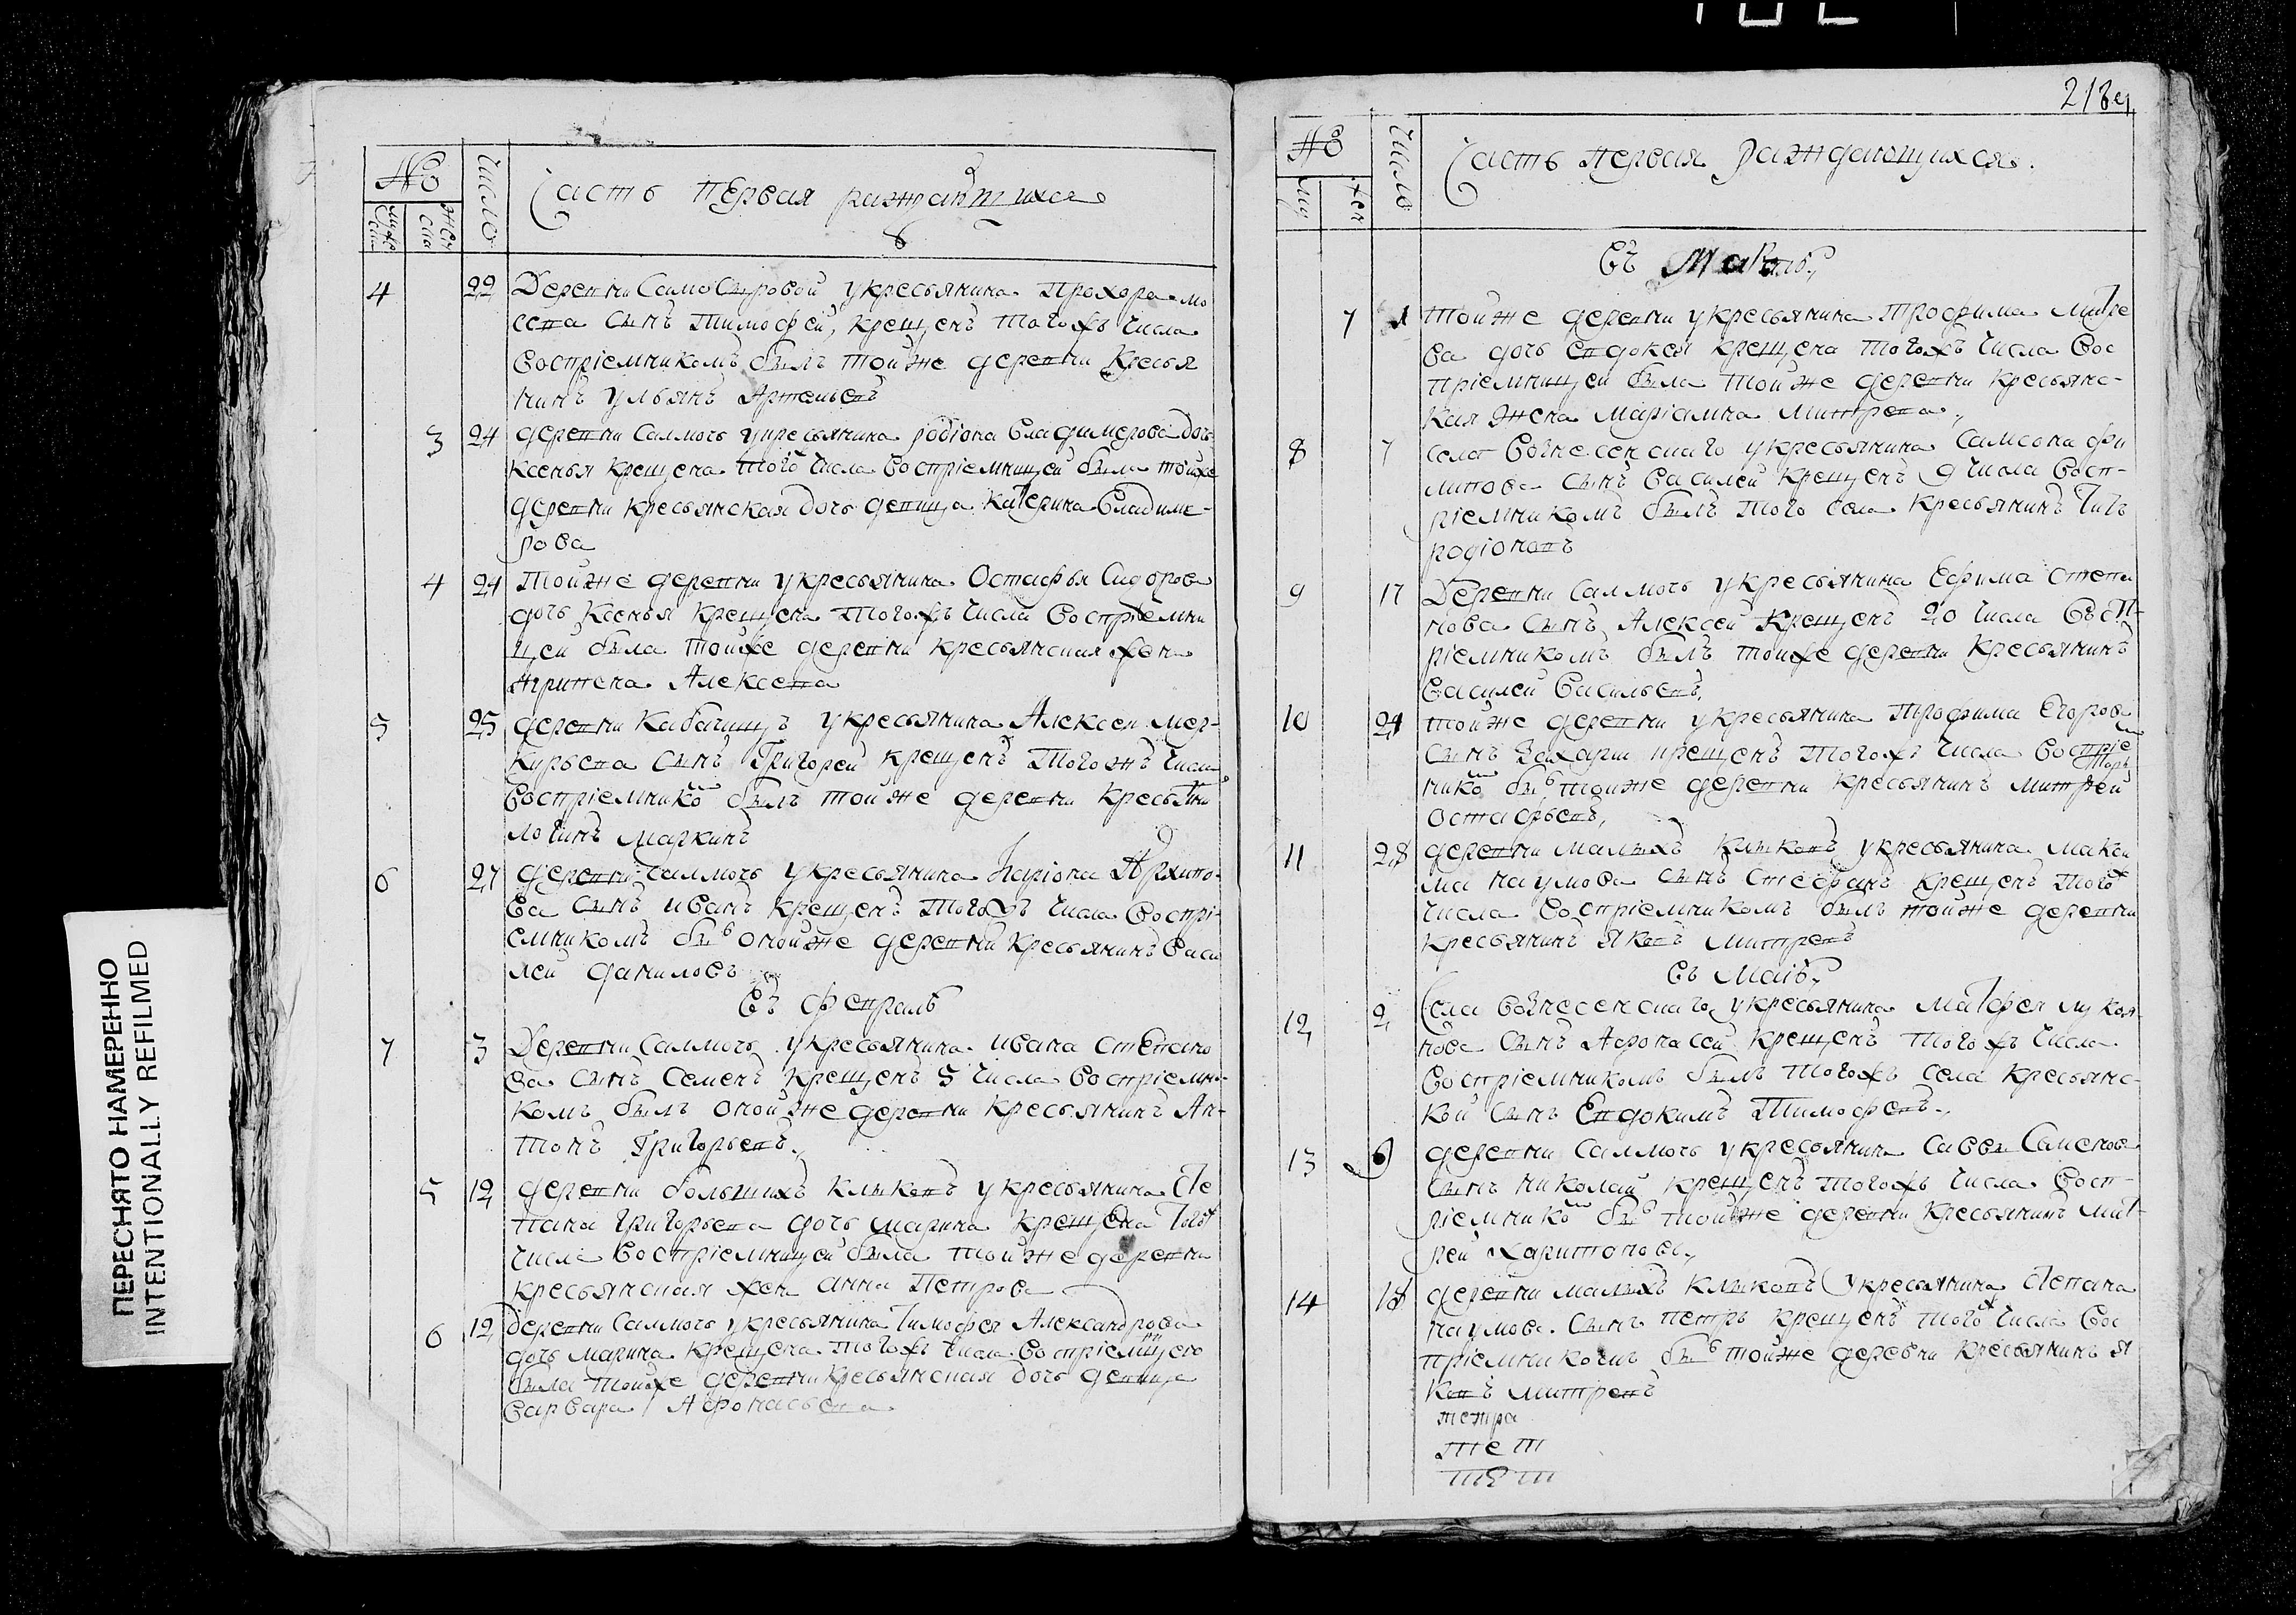 ПЕРЕСНЯТО НАМЕРЕННО
INTENTIONALLY REFILMED
№
Число
Часть первая раждающихся
мужеска
женска
4 22 Деревни Самосыровой у крестьянина Прохора Мо
сеева сынъ Тимофей, крещенъ тогожъ числа
воспріемникомъ былъ тойже деревни кресья
нинъ Ульянъ Артемьевъ
3 24 деревни Салмочь у кресьянина Родіона Владимерова дочь
Ксенья крещена того числа воспріемницей была тойже
деревни кресьянская дочь девица Катерина Владиме-
рова
4 24 тойже деревни у кресьянина Остафья Сидорова
дочь Ксенья крещена тогожъ числа воспріемни
цей была тойже деревни кресьянская жена
Агрипена Алексеева
5 25 деревни Кабачищъ у кресьянина Алексея Мер-
курьева сынъ Григорей крещенъ тогожъ числа
воспріемникомъ былъ тойже деревни кресьяни
Логинъ Маркинъ
6 27 деревни Салмочь у кресьянина Ларіона Архипо-
ва сынъ Иванъ крещенъ тогожъ числа воспрі-
емникомъ былъ онойже деревни кресьянинъ Васи
лей Даниловъ
въ февралѣ
7 3 Деревни Салмочь у кресьянина Ивана Степано
ва сынъ Семенъ крещенъ 5 числа воспріемни-
комъ былъ онойже деревни кресьянинъ Ан-
тонъ Григорьевъ
5 12 деревни большихъ Клыковъ у кресьянина Сте
пана Григорьева дочь Марина крещена тогож
числа воспріемницей была тойже деревни
кресьянская жена Анна Петрова
6 12 деревни Салмочь у кресьянина Тимофея Александрова
дочь Марина крещена тогожъ числа воспріемницею
была тойже деревни кресьянская дочь девица
Варвара Афонасьева
218
№
Число
Часть первая раждающихся.
му
жен
въ
7 тойже деревни у кресьянина Трофима Митре
ва дочь Евдокея крещена тогожъ числа вос
пріемницей была тойже деревни кресьянс-
кая жена Маріамна Митрева
8 7 села Вознесенскаго у кресьянина Самсона Фи
липова сынъ Василей крещенъ 9 числа восп-
ріемникомъ былъ того села кресьянинъ Титъ
Родіоновъ
9 17 Деревни Салмочь у кресьянина Ефима Степа
нова сынъ Алексей крещенъ 20 числа восп-
ріемникомъ былъ тойже деревни кресьянинъ
Василей Васильевъ
10 21 тойже деревни у кресьянина Трофима Егорова
сынъ Захаръ крещенъ тогожъ числа воспріе
никомъ былъ тойже деревни кресьянинъ Митрей
Остафьевъ
11 28 деревни малыхъ Клыковъ у кресьянина Макси
ма Наумова сынъ Стефанъ крещенъ того
числа воспріемникомъ былъ тойже деревни
кресьянинъ Яковъ Митревъ
въ Маіѣ
12 2 Села Вознесенскаго у кресьянина Матфея Лукоя-
нова сынъ Афонасей крещенъ тогожъ числа
воспріемникомъ былъ тогожъ села кресьянс-
кой сынъ Евдокимъ Тимофевъ
13 9 деревни Салмочь у кресьянина Савы Семенова
сынъ Николай крещенъ тогожъ числа восп-
ріемникомъ былъ тойже деревни кресьянинъ Мит-
рей Харитоновъ
14 18 деревни малыхъ Клыковъ у кресьянина Степана
Наумова сынъ Петръ крещенъ того числа вос
пріемникомъ былъ тойже деревни кресьянинъ Я
ковъ Митревъ